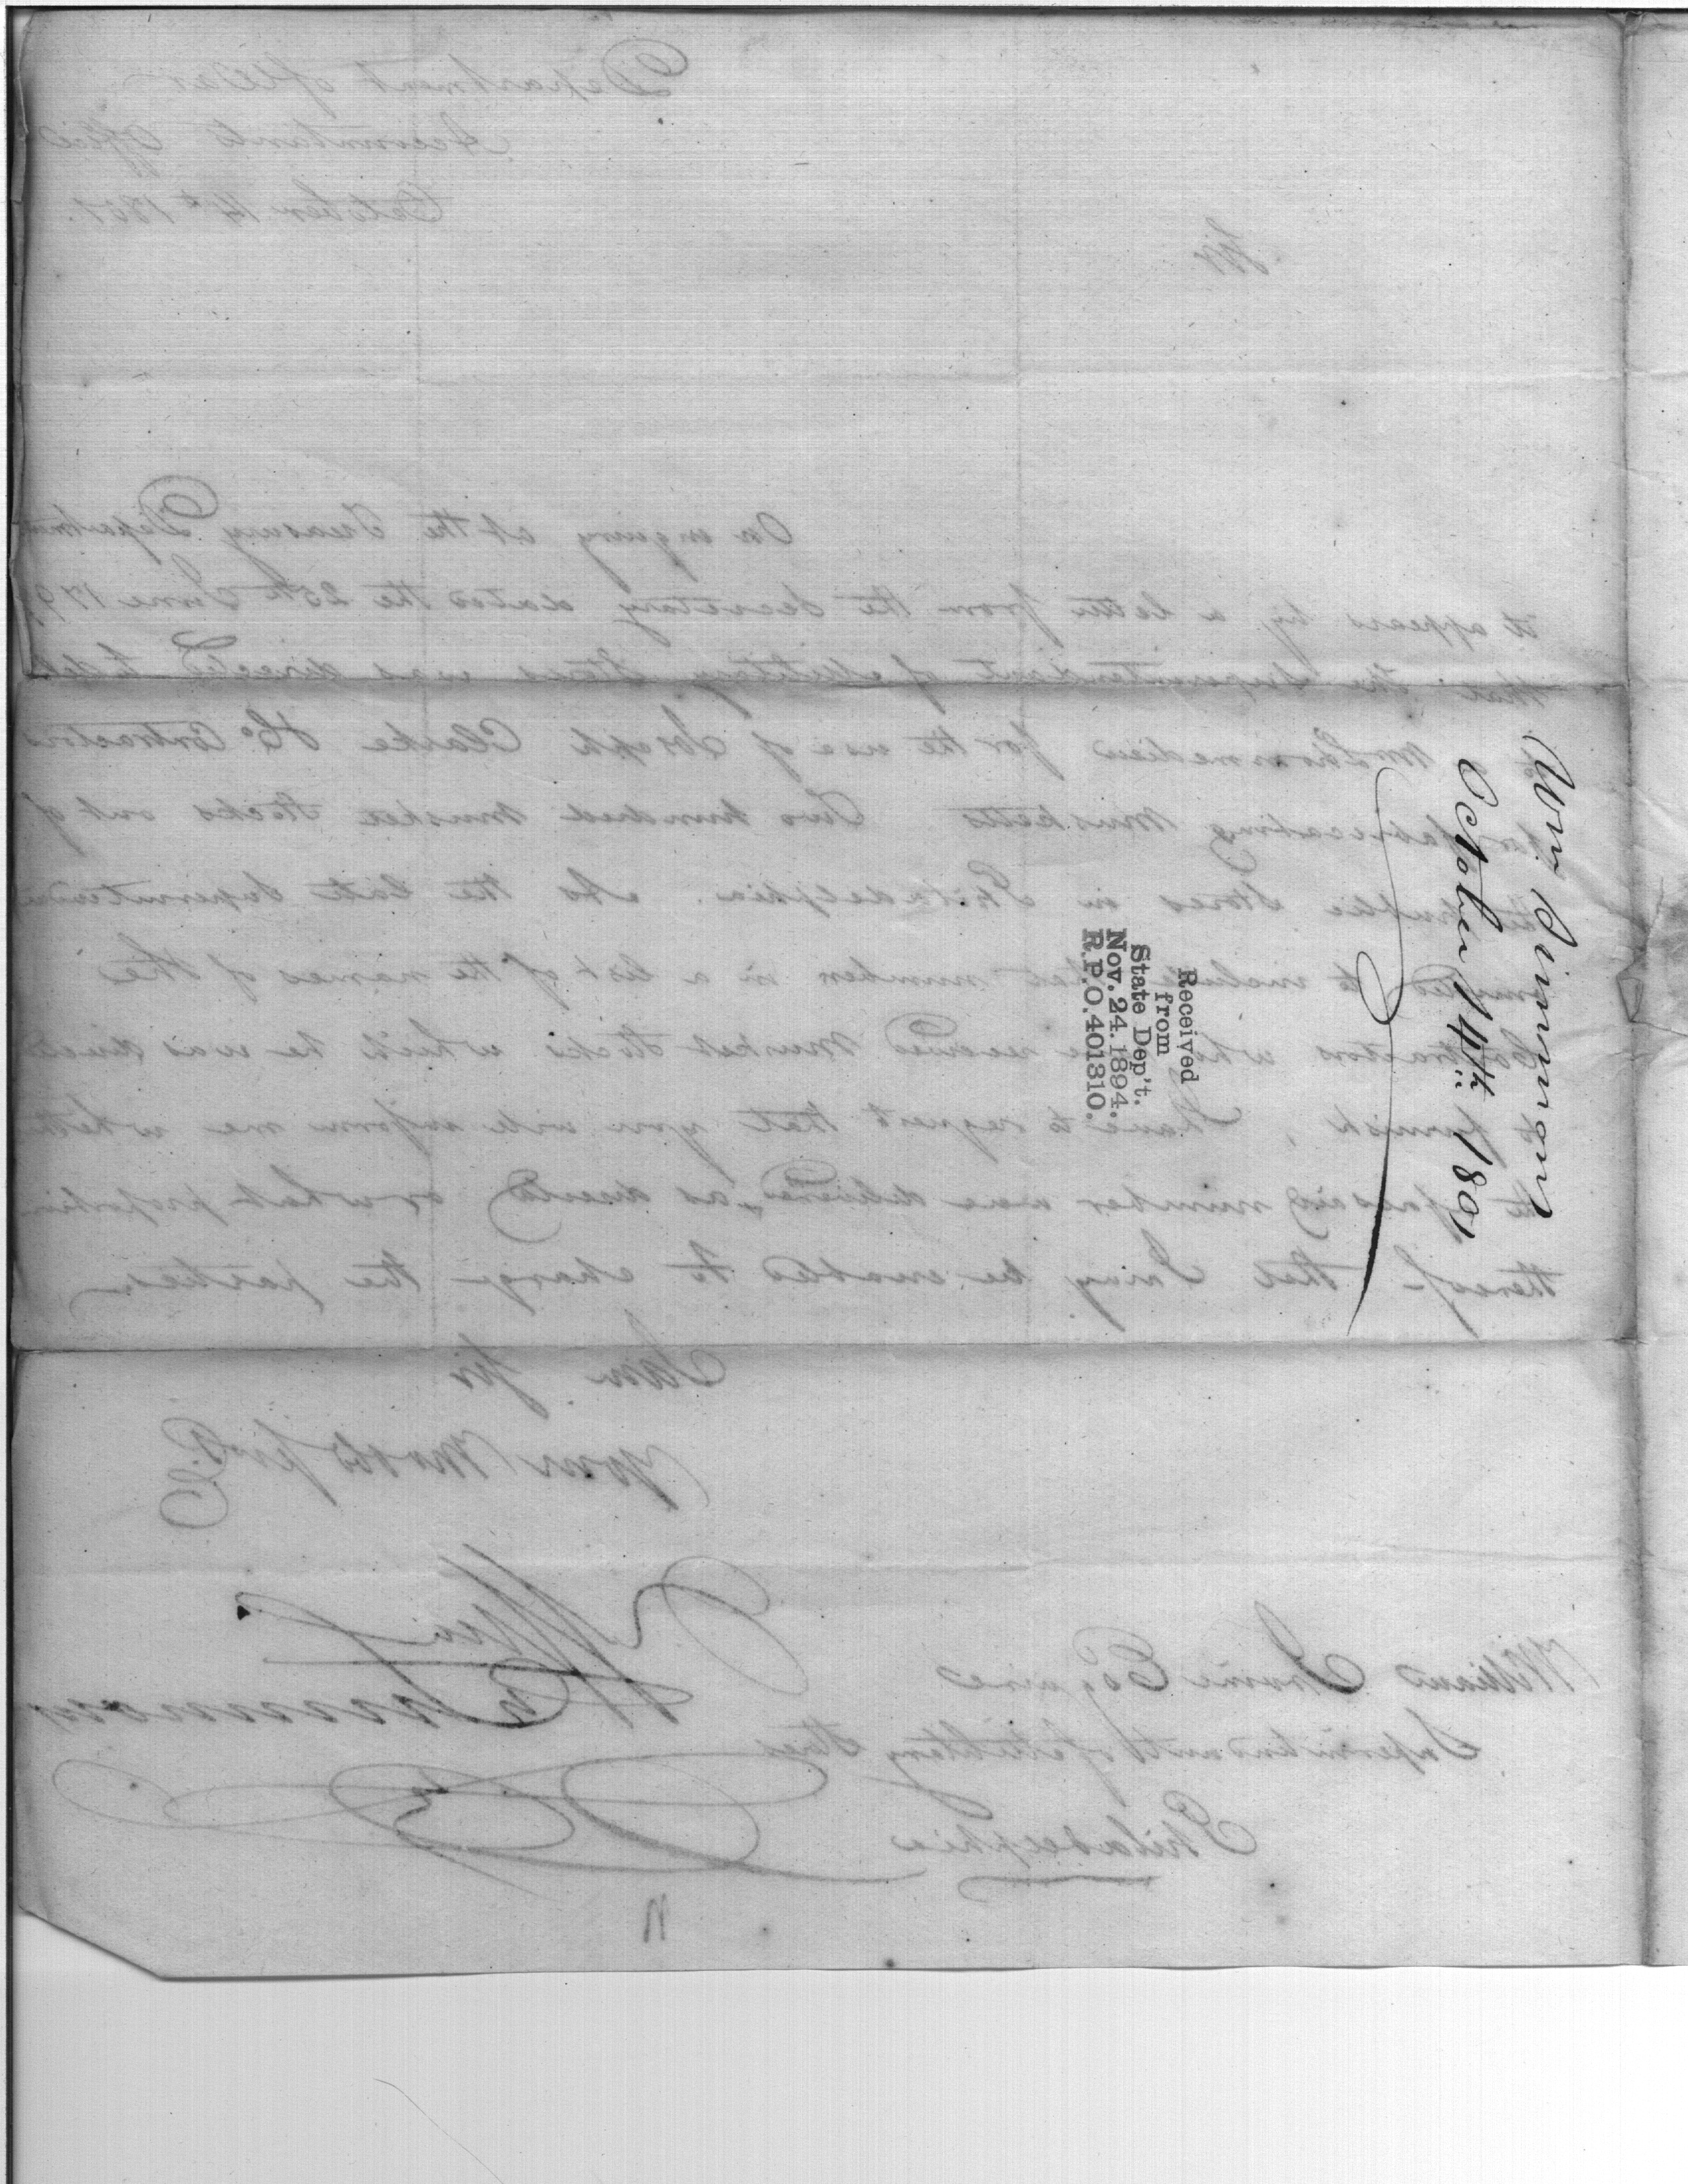 Wm Simmons
October 14th 1801
Received
from
State Dep't.
Nov. 24. 1894.
R.P.O. 401310.
Department of War
Accountants Office
October 14th 1801.
Sir
On enquiry at the Treasury Departm
it appears by a letter from the Secretary dated the 25th June 179
that the Superintendant of Military Stores was directed to del
to Lhommedieu for the use of Joseph Clarke & Co. Contractors
for fabricating Musketts Two hundred Musket Stocks out of
the public Stores in Philadelphia. As the late Superintend
omitted to include that number in a list of the names of the
Contractors who received Musket Stocks which he was direc
to furnish, I have to request that you will inform me wheth
the said number were delivered as directed or what proportion
thereof that I may be enabled to charge the parties
I am Sir
Your Mo. Ob. Serv.
Wm Simmons
William Irvine Esquire
Superintendant of Military Stores
Philadelphia